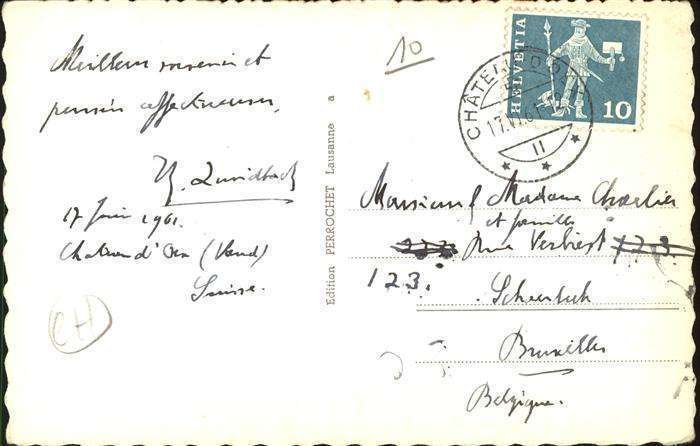 Meilleur souvenir et
pensées affectueuses,
17 Juin 1961.
Chateau d'Oex (Vaud)
Suisse.
CH
Edition PERROCHET Lausanne a
10
HELVETIA
10
CHÂTEAU-D'OEX
17.VI.61
II
Monsieur & Madame Charlier
et famille
Rue Verbist 123
123.
Bruxelles
Belgique.